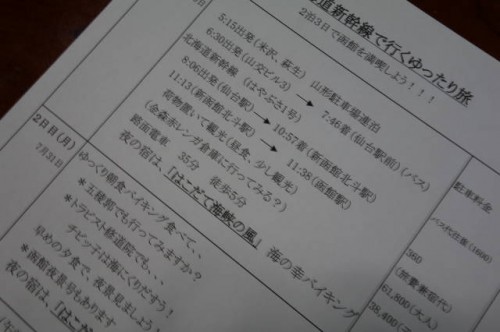 道新幹線で行くゆったり旅
2泊3日で函館を満喫しよう！！！
5:15出発（米沢、萩生） 山形駐車場連泊
6:30出発（山交ビル3） → 7:46着（仙台駅前）（バス）
北海道新幹線 （はやぶさ1号）
8:06出発（仙台駅） → 10:57着（新函館北斗駅）
11:13（新函館北斗駅） → 11:38（函館駅）
荷物置いて観光（昼食、少し観光）
（金森赤レンガ倉庫に行ってみる？）
路面電車 35分 徒歩5分
夜の宿は、「はこだて海峡の風」 海の幸バイキング
2日目（月）
7月31日
ゆっくり朝食バイキング食べて、
＊五稜郭でも行ってみますか？
＊トラピスト修道院でも、、、
チビッ子は海にくりだすう！
早めの夕食で、夜景見ましょう
＊函館夜景号もあります
夜の宿は、「はこ
駐車料金
バス代往復（
360
61,800（大人）
38,400